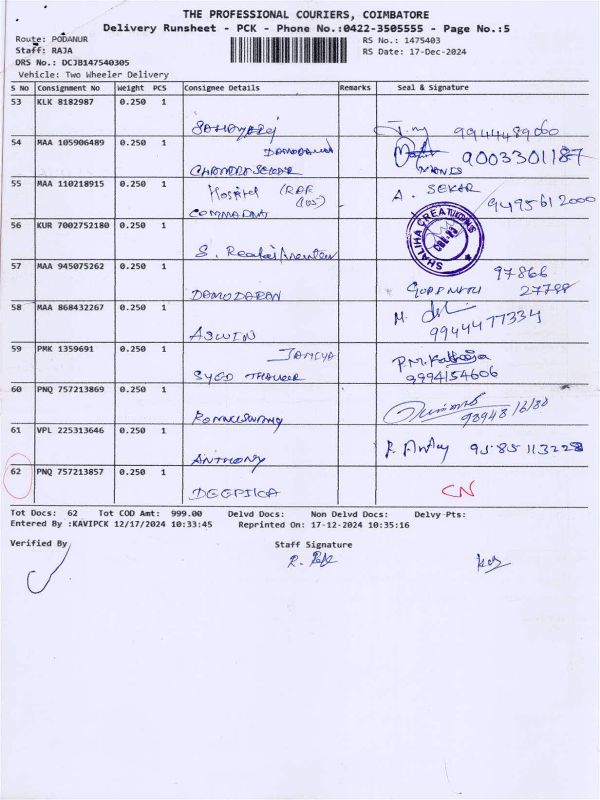 THE PROFESSIONAL COURIERS, COIMBATORE
Delivery Runsheet - PCK - Phone No.:0422-3505555 - Page No.:5
Route: PODANUR
RS No.: 1475403
Staff: RAJA
RS Date: 17-Dec-2024
DRS No.: DCJB147540305
Vehicle: Two Wheeler Delivery
S No Consignment No Weight PCS Consignee Details Remarks Seal & Signature
53 KLK 8182987 0.250 1
9944489060
54 MAA 105906489 0.250 1
DAMODARAN
9003301187
55 MAA 110218915 0.250 1
Hospital
A. SEKAR
9495612000
56 KUR 7002752180 0.250 1
SHALIHA CREATIONS
S.
57 MAA 945075262 0.250 1
97866
27788
DAMODARAN
GOPINATH
58 MAA 868432267 0.250 1
M.
9944477334
ASWIN
59 PMK 1359691 0.250 1
JAMIYA
P.M.
SYED
9994154606
60 PNQ 757213869 0.250 1
PONNUSWAMY
61 VPL 225313646 0.250 1
9585113228
ANTHONY
62 PNQ 757213857 0.250 1
DEEPIKA
CN
Tot Docs: 62 Tot COD Amt: 999.00 Delvd Docs: Non Delvd Docs: Delvy-Pts:
Entered By :KAVIPCK 12/17/2024 10:33:45 Reprinted On: 17-12-2024 10:35:16
Verified By
Staff Signature